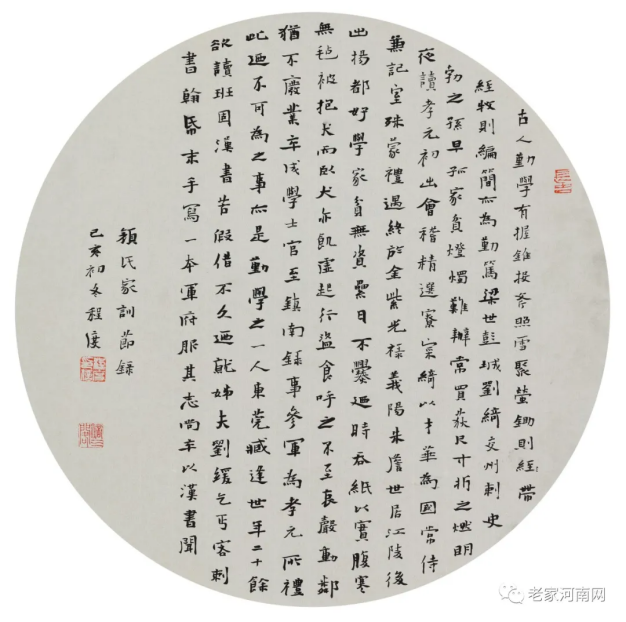 古人勤學有握錐投斧照雪聚螢鋤則經帶
經牧則編簡亦為勤篤梁世彭城劉綺交州刺史
勃之孫早孤家貧燈燭難辦常買荻尺寸折之燃明
夜讀孝元初出會稽精選寮寀綺以才華為國常侍
兼記室殊蒙禮遇終於金紫光祿義陽朱詹世居江陵後
出揚都好學家貧無資纍日不爨迺時吞紙以實腹寒
無氈被抱犬而臥犬亦飢虛起行盜食呼之不至哀聲動鄰
猶不廢業卒成學士官至鎮南錄事參軍為孝元所禮
此迺不可為之事亦是勤學之一人東莞臧逢世年二十餘
欲讀班固漢書苦假借不久迺就姊夫劉緩乞丐客刺
書翰帋末手寫一本軍府服其志尚卒以漢書聞
顏氏家訓節錄
己亥初冬程
老家河南网